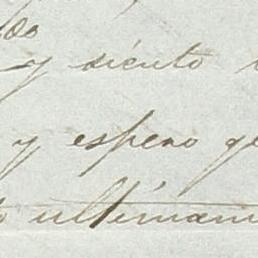 y siento
y espero
ultimam